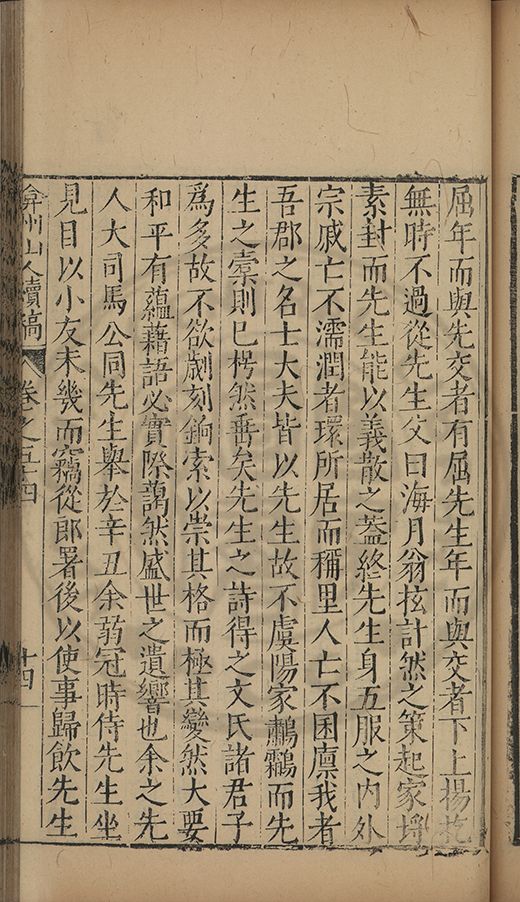 屈年而與先交者有屈先生年而與交者下上揚扢
無時不過從先生父曰海月翁抎計然之策起家埒
素封而先生能以義散之蓋終先生身五服之内外
宗戚亡不濡潤者環所居而稱里人亡不困廪我者
吾郡之名士大夫皆以先生故不虞陽家鸕鷀而先
生之槖則已枵然罄矣先生之詩得之文氏諸君子
爲多故不欲劌刻鉤索以崇其格而極其變然大要
和平有蘊藉語必實際藹然盛世之遺響也余之先
人大司馬公同先生舉於辛丑余葯冠時侍先生坐
見目以小友未幾而竊從郎署後以使事歸飲先生
弇州山人續稿 卷之五十四 十四